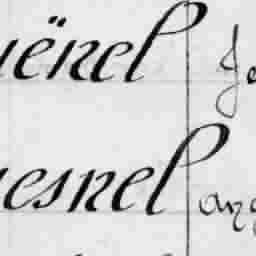 uënel Je
uesnel ang